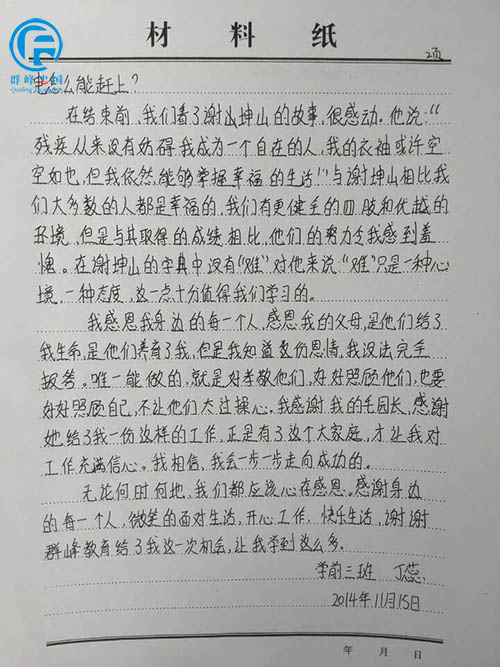 材料纸
群峰
2页
怎么能赶上?
在结束前,我们看了谢坤山的故事,很感动。他说:“
残疾从来没有妨碍我成为一个自在的人,我的衣袖或许空
空如也,但我依然能够掌握幸福的生活!”与谢坤山相比,我
们大多数的人都是幸福的,我们有更健全的四肢和优越的
环境,但是与其取得的成绩相比,他们的努力令我感到羞
愧。在谢坤山的字典中没有“难”对他来说“难”只是一种心
境,一种态度,这一点十分值得我们学习的。
我感恩我身边的每一个人,感恩我的父母,是他们给了
我生命,是他们养育了我,但是我知道这份恩情,我没法完全
报答。唯一能做的,就是对孝敬他们,好好照顾他们,也要
好好照顾自己,不让他们太过操心。我感谢我的毛园长,感谢
她给了我一份这样的工作,正是有了这个大家庭,才让我对
工作充满信心。我相信,我会一步一步走向成功的。
无论何时何地,我们都应该心存感恩。感谢身边
的每一个人,微笑的面对生活,开心工作,快乐生活,谢谢
群峰教育给了我这一次机会,让我学到这么多。
学前三班 丁蕊
2014年11月15日
年 月 日